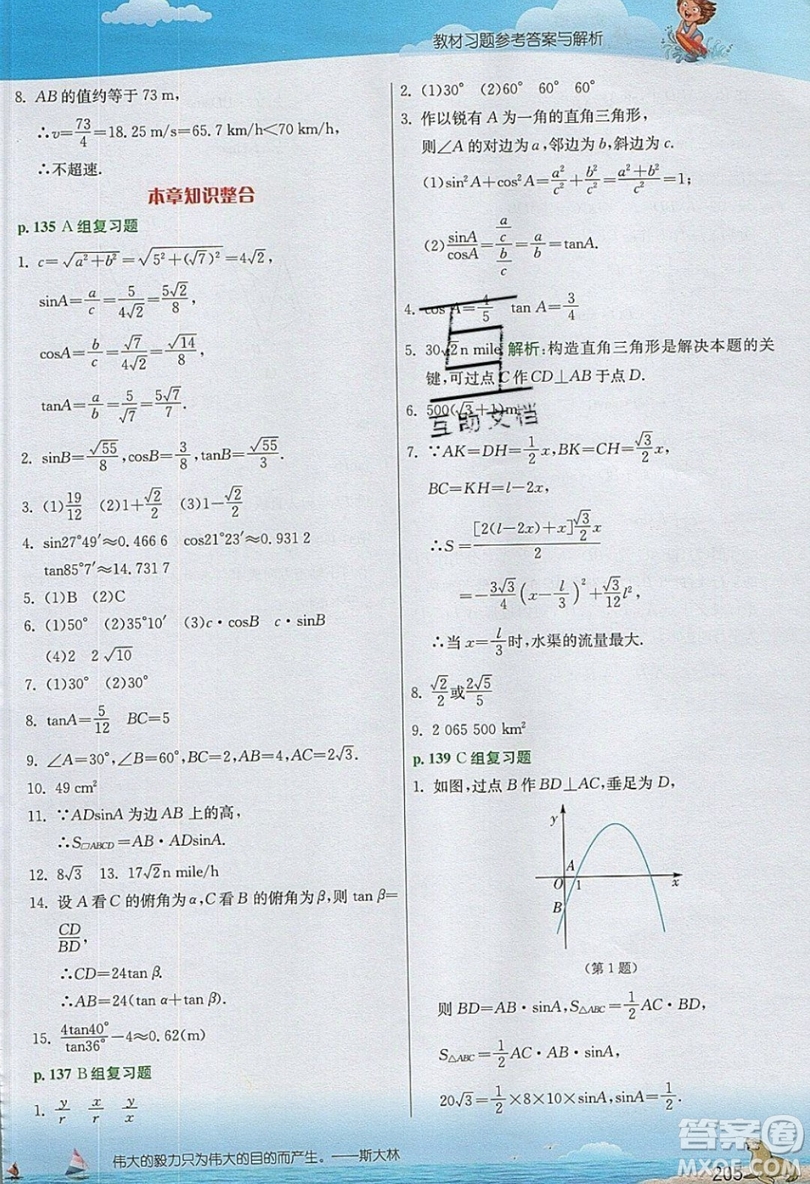 教材习题参考答案与解析
8. AB的值约等于73 m,
∴v=73/4=18.25 m/s=65.7 km/h<70 km/h,
∴不超速.
本章知识整合
p. 135 A组复习题
1. c=√(a²+b²)=√(5²+(√7)²)=4√2,
sinA=a/c=5/(4√2)=5√2/8,
cosA=b/c=√7/(4√2)=√14/8,
tanA=a/b=5/√7=5√7/7.
2. sinB=√55/8, cosB=3/8, tanB=√55/3.
3. (1)19/12 (2)1+√2/2 (3)1-√2/2
4. sin27°49′≈0.466 6 cos21°23′≈0.931 2
tan85°7′≈14.731 7
5. (1)B (2)C
6. (1)50° (2)35°10′ (3)c·cosB c·sinB
(4)2 2√10
7. (1)30° (2)30°
8. tanA=5/12 BC=5
9. ∠A=30°,∠B=60°,BC=2,AB=4,AC=2√3.
10. 49 cm²
11. ∵ADsinA为边AB上的高,
∴S▱ABCD=AB·ADsinA.
12. 8√3 13. 17√2n mile/h
14. 设A看C的俯角为α,C看B的俯角为β,则tan β=
CD/BD,
∴CD=24tan β.
∴AB=24(tan α+tan β).
15. 4tan40°/tan36°-4≈0.62(m)
p. 137 B组复习题
1. y/r x/r y/x
2. (1)30° (2)60° 60° 60°
3. 作以锐有A为一角的直角三角形,
则∠A的对边为a,邻边为b,斜边为c.
(1)sin²A+cos²A=a²/c²+b²/c²=(a²+b²)/c²=1;
(2)sinA/cosA=(a/c)/(b/c)=a/b=tanA.
4. cos A=4/5 tan A=3/4
5. 30√2n mile 解析:构造直角三角形是解决本题的关
键,可过点C作CD⊥AB于点D.
6. 500(√3+1)m
互助文档
7. ∵AK=DH=1/2x,BK=CH=√3/2x,
BC=KH=l-2x,
∴S=([2(l-2x)+x]√3/2x)/2
=-3√3/4(x-l/3)²+√3/12l²,
∴当x=l/3时,水渠的流量最大.
8. √2/2或2√5/5
9. 2 065 500 km²
p. 139 C组复习题
1. 如图,过点B作BD⊥AC,垂足为D,
y
A
O 1 x
B
(第1题)
则BD=AB·sinA,S△ABC=1/2AC·BD,
S△ABC=1/2AB·AC·sinA,
20√3=1/2×8×10×sinA,sinA=1/2.
伟大的毅力只为伟大的目的而产生。——斯大林
205
答案圈
MXQE.COM